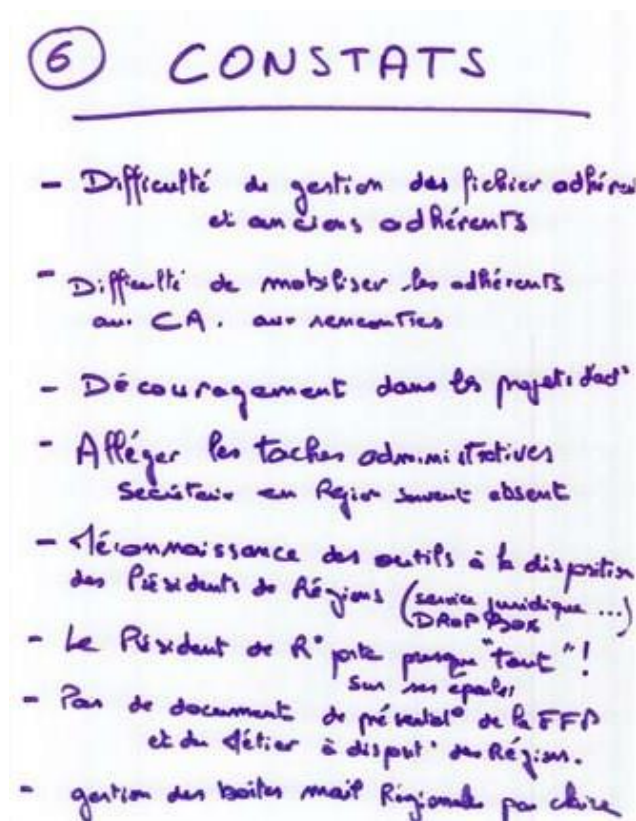 6 CONSTATS
- Difficulté de gestion des fichier adhérent
et anciens adhérents
- Difficulté de mobiliser les adhérents
aux CA. aux rencontres
- Découragement dans les projets d'act°
- Alléger les taches administratives
Secrétaire en Région souvent absent
- Méconnaissance des outils à la disposition
des Présidents de Régions (service juridique ...)
DROP BOX
- Le Président de R° porte presque "tout" !
sur ses épaules
- Pas de document de présentat° de la FFP
et du Métier à disposit° des Régions.
- gestion des boites mail Régionales pas claire